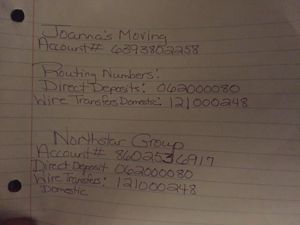 Joanna's Moving
Account# 6393802258
Routing Numbers:
Direct Deposits: 062000080
Wire Transfers Domestic: 121000248
Northstar Group
Account# 8602536917
Direct Deposit 062000080
Wire Transfers: 121000248
Domestic